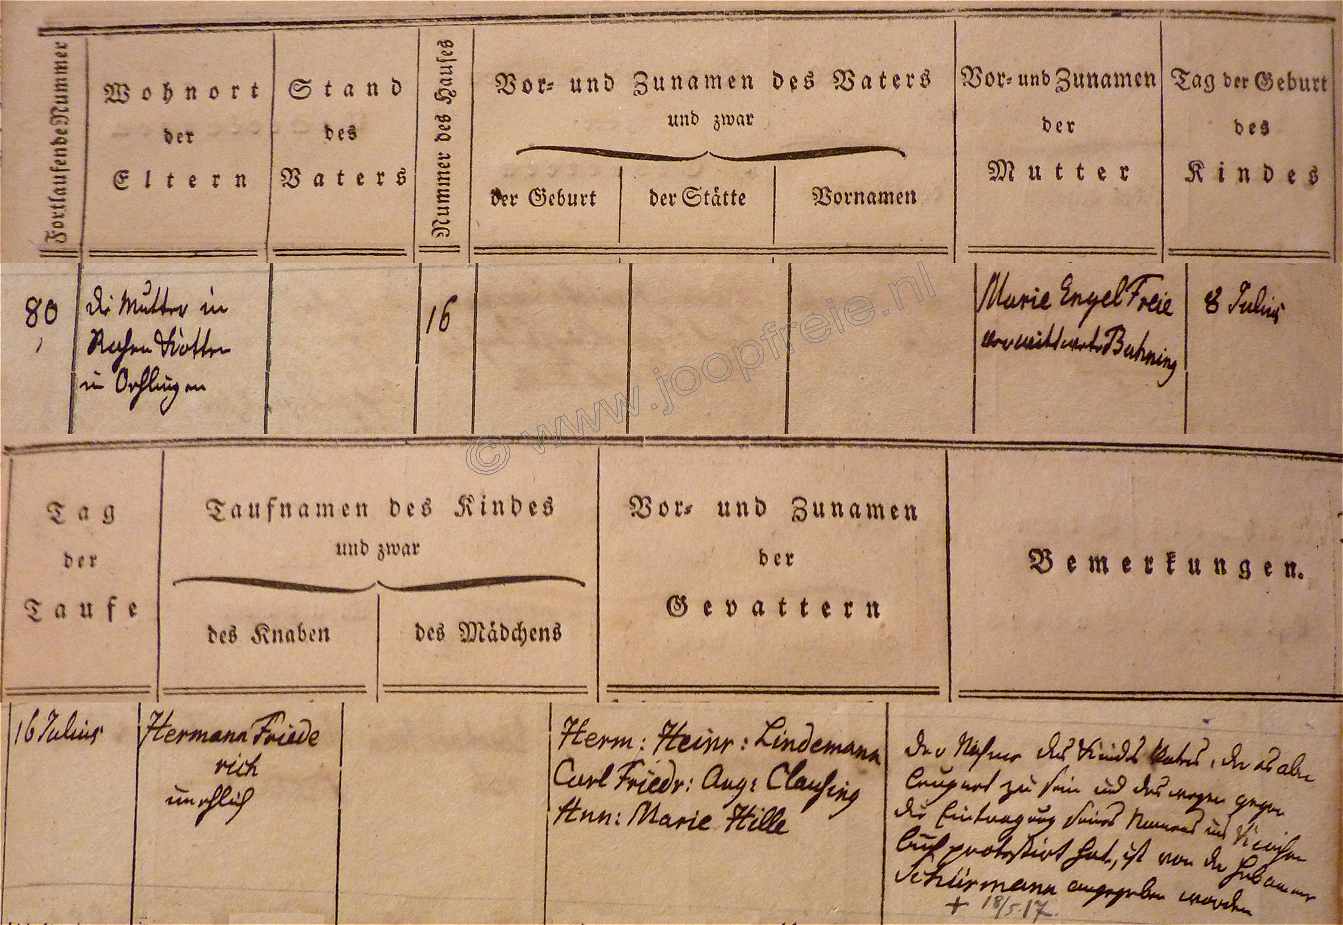 Fortlaufende Nummer
Wohnort
der
Eltern
Stand
des
Vaters
Nummer des Hauses
Vor- und Zunamen des Vaters
und zwar
der Geburt
der Stätte
Vornamen
Vor- und Zunamen
der
Mutter
Tag der Geburt
des
Kindes
80
die Mutter in
in
16
Marie Engel Freie
verwittwete Buhning
8 Julius
© www.joopfreie.nl
Tag
der
Taufe
Taufnamen des Kindes
und zwar
des Knaben
des Mädchens
Vor- und Zunamen
der
Gevattern
Bemerkungen.
16 Julius
Hermann Friede
rich
unehlich
Herm: Heinr: Lindemann
Carl Friedr: Aug: Clausing
Ann: Marie Hille
der Nahme des Kindes Vaters, der es aber
leugnet zu sein und deswegen gegen
die Eintragung seines Namens ins Kirchen
buch protestirt hat, ist von der Hebamme
Schürmann angegeben worden
+ 18/5.17.